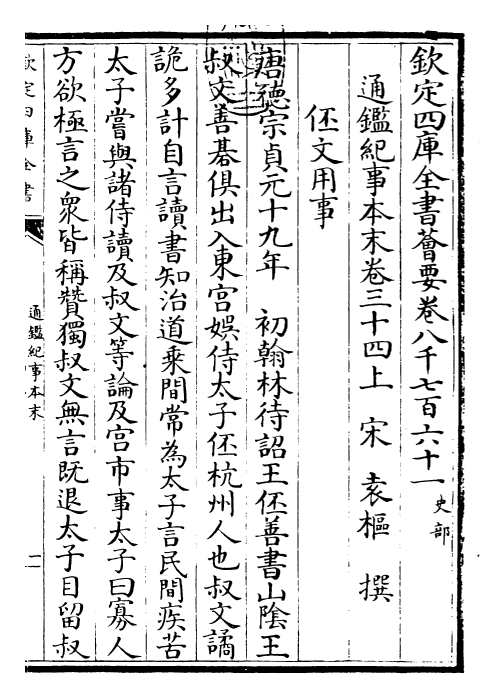 欽定四庫全書薈要卷八千七百六十一 史部
通鑑紀事本末卷三十四上 宋 袁樞 撰
伾文用事
唐德宗貞元十九年 初翰林待詔王伾善書山陰王
叔文善棊俱出入東宮娛侍太子伾杭州人也叔文譎
詭多計自言讀書知治道乘間常為太子言民間疾苦
太子嘗與諸侍讀及叔文等論及宮市事太子曰寡人
方欲極言之衆皆稱贊獨叔文無言既退太子自留叔
欽定四庫全書
通鑑紀事本末